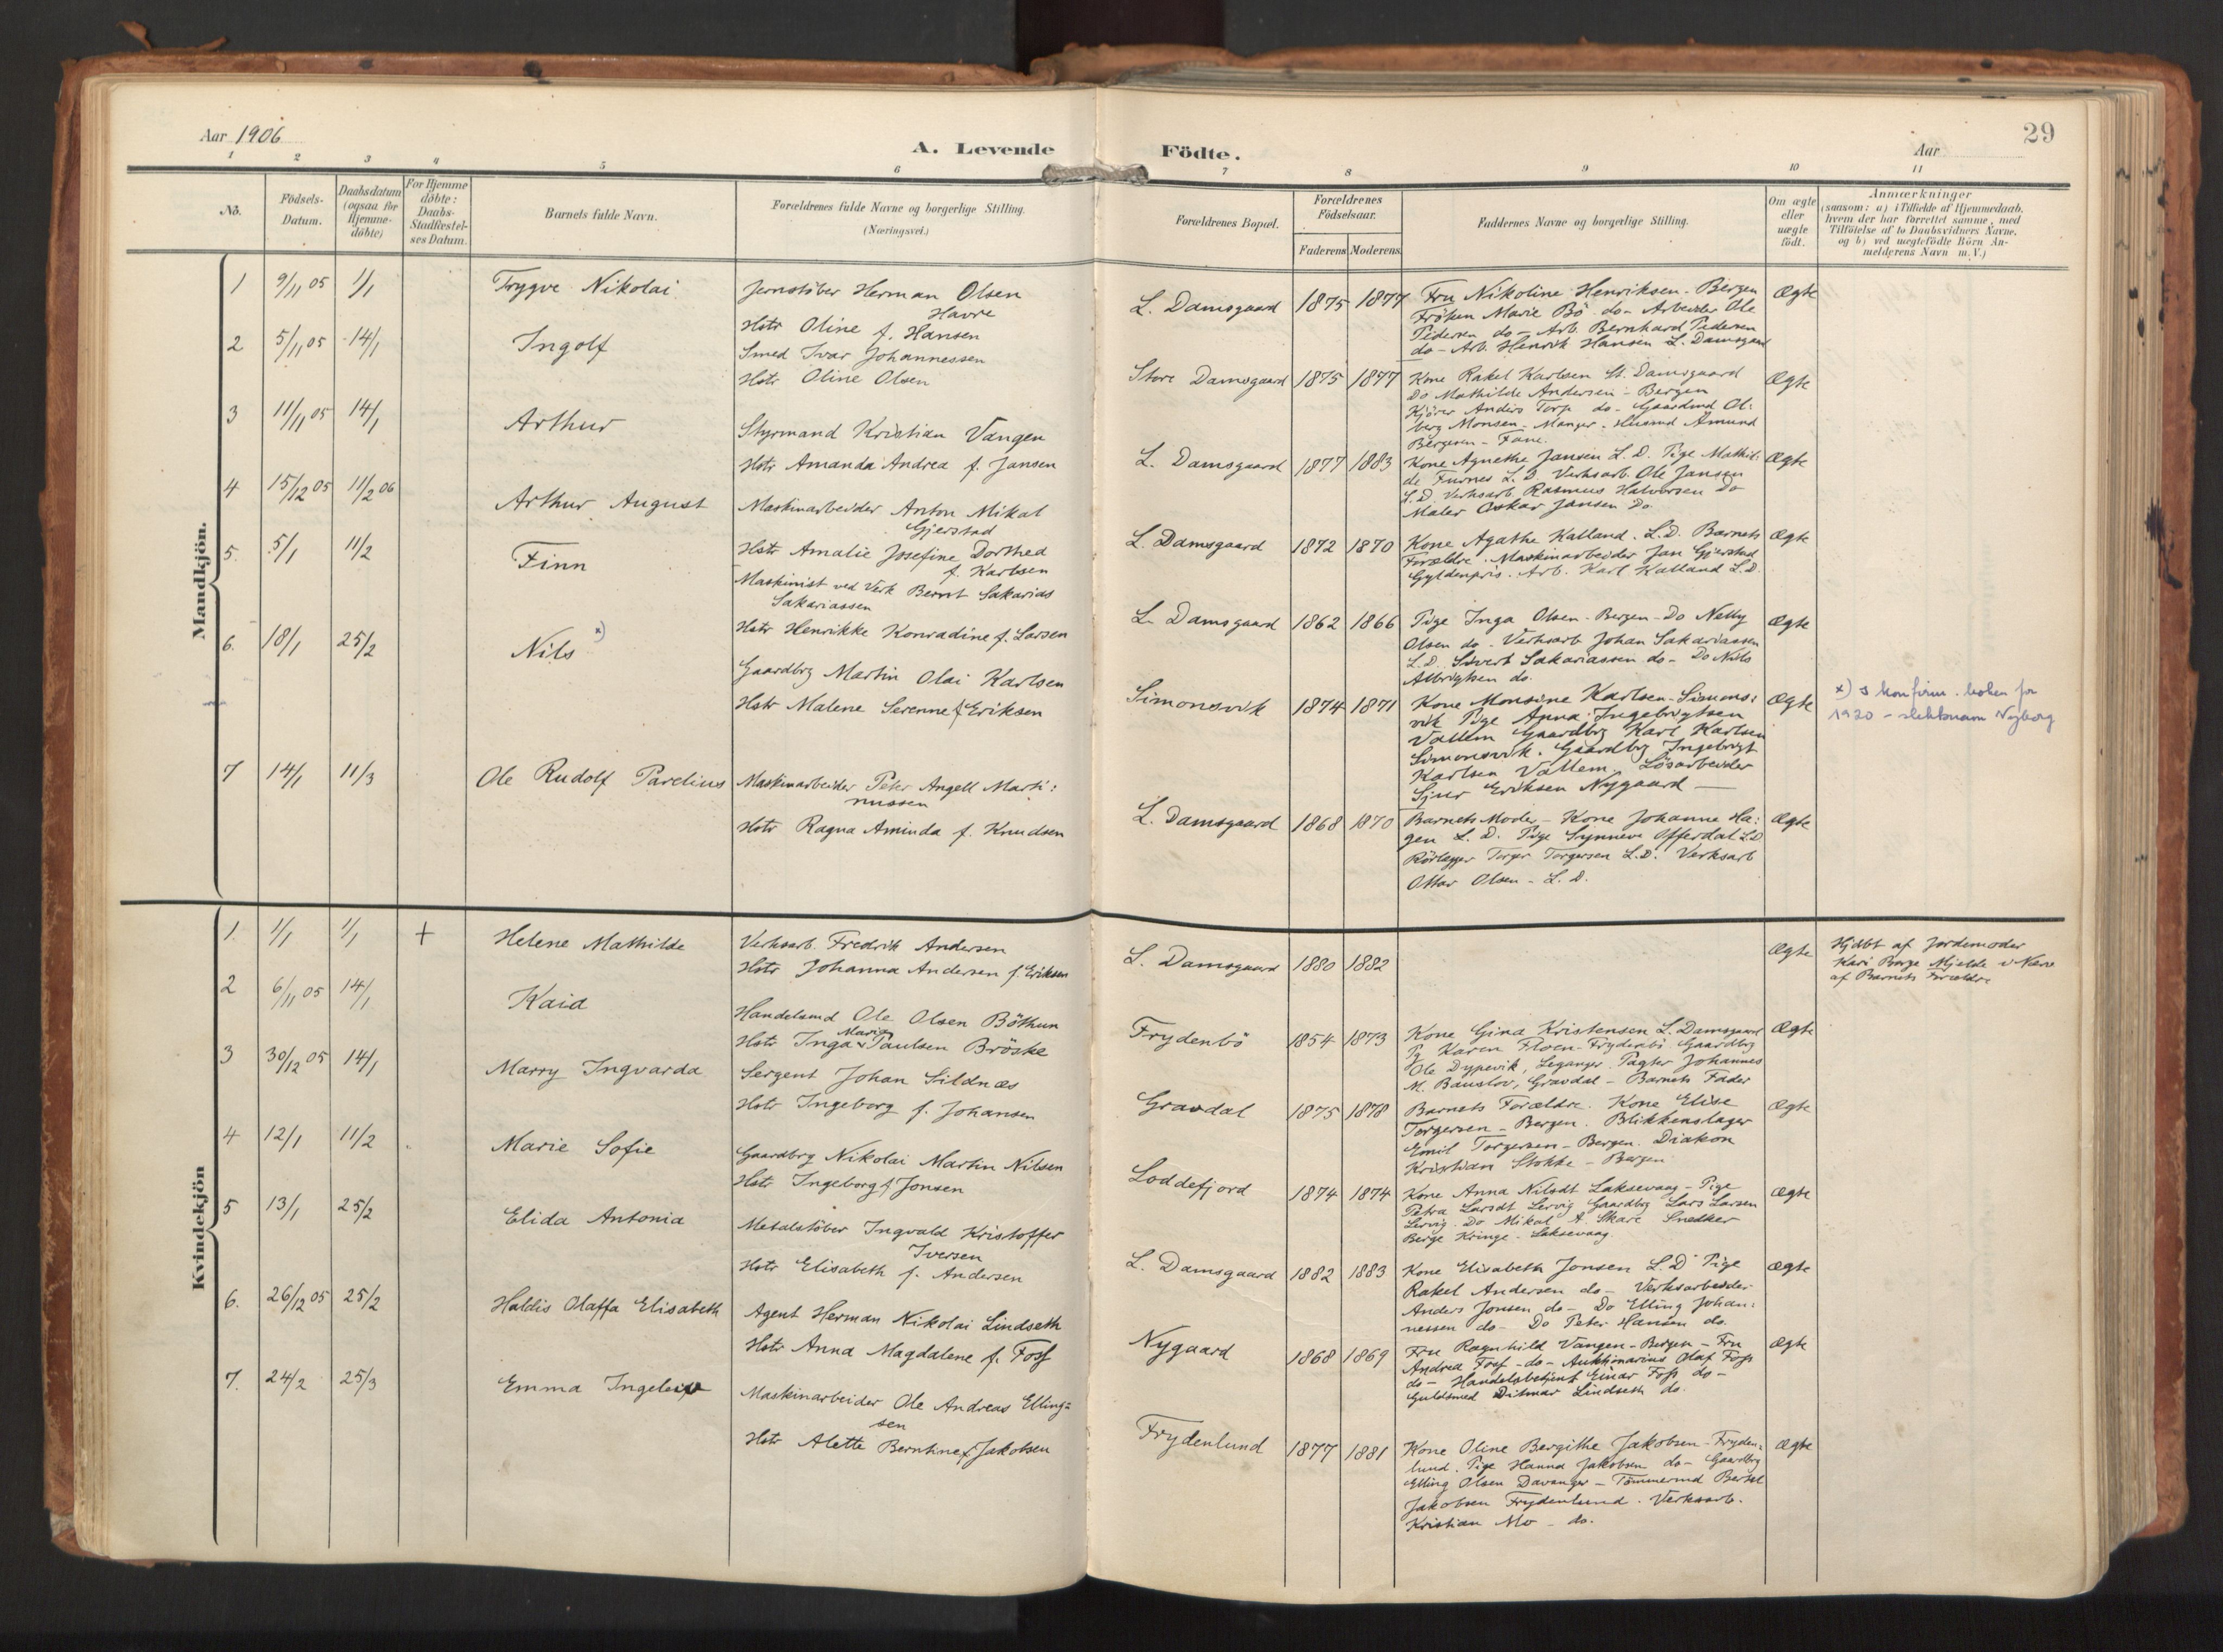 Aar 1906
A. Levende
Födte.
Aar
29
1 2 3 4 5 6 7 8 9 10 11
No.
Födsels-
Datum.
Daabsdatum
(ogsaa for
Hjemme-
döbte)
For Hjemme
döbte:
Daabs-
Stadfæstel-
ses Datum.
Barnets fulde Navn.
Forældrenes fulde Navne og borgerlige Stilling.
(Næringsvei.)
Forældrenes Bopæl.
Forældrenes
Födselsaar.
Faderens Moderens
Faddernes Navne og borgerlige Stilling.
Om ægte
eller
uægte
födt.
Anmærkninger
(saasom: a) i Tilfælde af Hjemmedaab,
hvem der har forrettet samme, med
Tilföielse af to Daabsvidners Navne,
og b) ved uægtefödte Börn An-
melderens Navn m.V.)
Mandkjön.
1 9/11 05 1/1 Trygve Nikolai
Jernstöber Herman Olsen
Havre
Hstr Oline f. Hansen
L. Damsgaard 1875 1877
Fru Nikoline Henriksen - Bergen
Fröken Marie Bö do - Arbeider Ole
Pedersen do - Arb. Bernhard Pedersen
do - Arb. Henrik Hansen L. Damsgaard
Ægte
2 5/11 05 14/1 Ingolf
Smed Ivar Johannessen
Hstr Oline Olsen
Store Damsgaard 1875 1877
Kone Rakel Karlsen St. Damsgaard
Do Mathilde Andersen - Bergen
Kjörer Anders Torp do - Gaardmd Ol:
berg Monsen - Manger - Husmd Amund
Bergesen - Fane.
Ægte
3 11/11 05 14/1 Arthur
Styrmand Kristian Vangen
Hstr Amanda Andrea f. Jansen
L. Damsgaard 1877 1883
Kone Agnethe Jansen L. D. Pige Mathil:
de Furnes L. D. Verksarb. Ole Jansen
L. D. Verksarb. Rasmus Halvorsen Do
Maler Oskar Jansen Do.
Ægte
4 15/12 05 11/2 06 Arthur August
Maskinarbeider Anton Mikal
Gjerstad
Hstr Amalie Josefine Dorthea
f. Karlsen
L. Damsgaard 1872 1870
Kone Agathe Kalland. L. D. Barnets
Forældre. Maskinarbeider Jan Gjerstad
Gyldenpris. Arb. Karl Kalland L. D.
Ægte
5. 5/1 11/2 Finn
Maskinist ved Verk Bernt Sakarias
Sakariassen
Hstr Henrikke Konradine f. Larsen
L. Damsgaard 1862 1866
Pige Inga Olsen - Bergen - Do Nelly
Olsen do - Verksarb Johan Sakariassen
L. D. Sivert Sakariassen do - Do Nils
Albrigtsen do.
Ægte
6. 18/1 25/2 Nils x)
Gaardbrg Martin Olai Karlsen
Hstr Malene Serenne f. Eriksen
Simonsvik 1874 1871
Kone Monsine Karlsen - Simons:
vik Pige Anna Ingebrigtsen
Vallem Gaardbrg Karl Karlsen
Simonsvik. Gaardbrg Ingebrigt
Karlsen Vallem. Lösarbeider
Sjur Eriksen Nygaard —
Ægte
x) I konfirm. boken for
1920 - slektsnavn Nyborg
7 14/1 11/3 Ole Rudolf Parelius
Maskinarbeider Peter Angell Marti:
nussen
Hstr Ragna Aminda f. Knudsen
L. Damsgaard 1868 1870
Barnets Moder - Kone Johanna Ha:
gen L. D. Pige Synneve Offerdal L. D
Rörlægger Torger Torgersen L. D. Verksarb
Ottar Olsen - L. D.
Ægte
Kvindekjön
1. 1/1 1/1 + Helene Mathilde
Verksarb. Fredrik Andersen
Hstr Johanna Andersen f. Eriksen
L. Damsgaard 1880 1882
Ægte
Hjdbt af Jordemoder
Kari Borge Mjelde i Nærv
af Barnets Forældre
2 6/11 05 14/1 Kaia
Handelsmd Ole Olsen Böthun
Marie
Hstr Inga Paulsen Bröske
Frydenbö 1854 1873
Kone Gina Kristensen L. Damsgaard
Pg Karen Floen - Frydenbö. Gaardbrg
Ole Dypevik, Leganger. Pagter Johannes
M. Bauslov, Gravdal - Barnets Fader
Ægte
3 30/12 05 14/1 Marry Ingvarda
Sergent Johan Sildnæs
Hstr Ingeborg f. Johansen
Gravdal 1875 1878
Barnets Forældre. Kone Elise
Torgersen - Bergen. Blikkenslager
Emil Torgersen - Bergen. Diakon
Kristian Stokke - Bergen
Ægte
4 12/1 11/2 Marie Sofie
Gaardbrg Nikolai Martin Nilsen
Hstr Ingeborg f. Jonsen
Loddefjord 1874 1874
Kone Anna Nilsdt Laksevaag - Pige
Petra Larsdt Lervig Gaardbrg Lars Larsen
Lervig. Do Mikal A. Skare Snedker
Berge Kringe - Laksevaag
Ægte
5 13/1 25/2 Elida Antonia
Metalstöber Ingvald Kristoffer
Iversen
Hstr Elisabeth f. Andersen
L. Damsgaard 1882 1883
Kone Elisabeth Jonsen L. D. Pige
Rakel Andersen do - Verksarbeider
Anders Jonsen do - Do Elling Johan:
nessen do - Do Peter Hansen do.
Ægte
6. 26/12 05 25/2 Haldis Olaffa Elisabeth
Agent Herman Nikolai Lindseth
Hstr Anna Magdalene f. Foss
Nygaard 1868 1869
Fru Ragnhild Vangen - Bergen - Fru
Andrea Foss - do - Auktionarius Olaf Foss
do - Handelsbetjent Einar Foss do -
Guldsmed Ditmar Lindseth do.
Ægte
7. 24/2 25/3 Emma Ingeleiv
Maskinarbeider Ole Andreas Elling=
sen
Hstr Alette Berntine f. Jakobsen
Frydenlund 1877 1881
Kone Oline Bergithe Jakobsen - Fryden=
lund. Pige Hanna Jakobsen do - Gaardbrg
Elling Olsen Davanger - Tömmermd Bertel
Jakobsen Frydenlund. Verksarb.
Kristian Mo - do.
Ægte